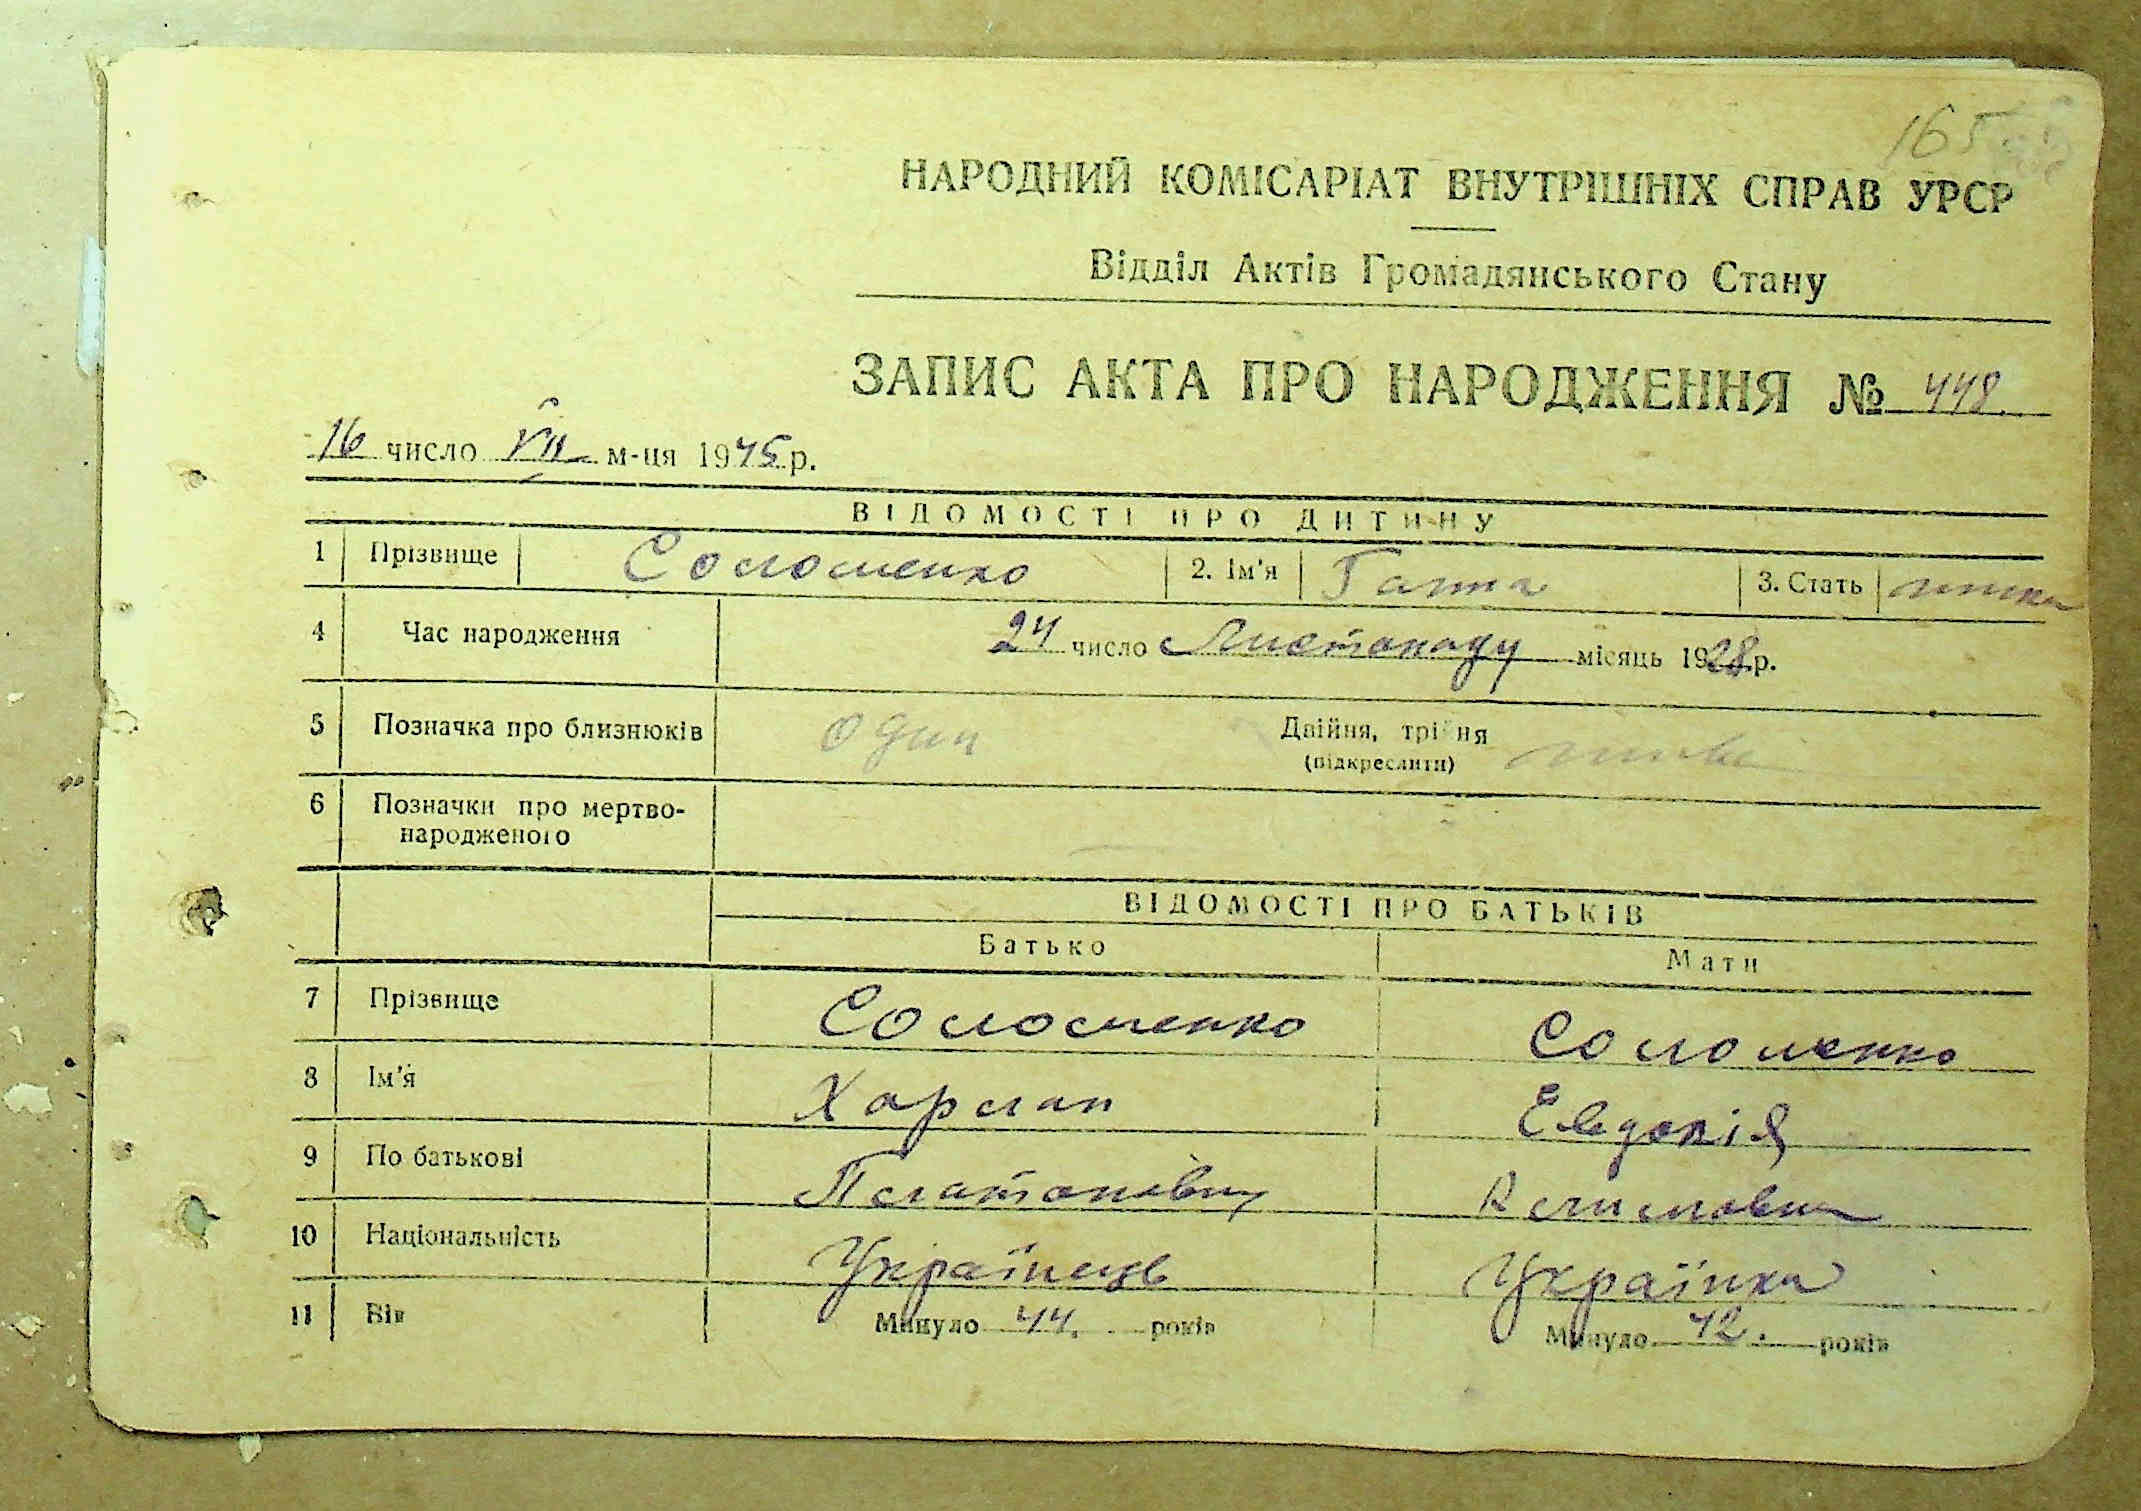 165
НАРОДНИЙ КОМІСАРІАТ ВНУТРІШНІХ СПРАВ УРСР
Відділ Актів Громадянського Стану
ЗАПИС АКТА ПРО НАРОДЖЕННЯ № 448.
16 число VII м-ця 1945 р.
ВІДОМОСТІ ПРО ДИТИНУ
1 Прізвище Соломенко 2. Ім'я Ганна 3. Стать
4 Час народження 24 число Листопаду місяць 1928 р.
5 Позначка про близнюків один Двійня, трійня
(підкреслити)
6 Позначки про мертво-
народженого
ВІДОМОСТІ ПРО БАТЬКІВ
Батько Мати
7 Прізвище Соломенко Соломенко
8 Ім'я Харлан Евдокія
9 По батькові Платонович Климовна
10 Національність Українець Українка
11 Вік Минуло 44. років Минуло 42. років